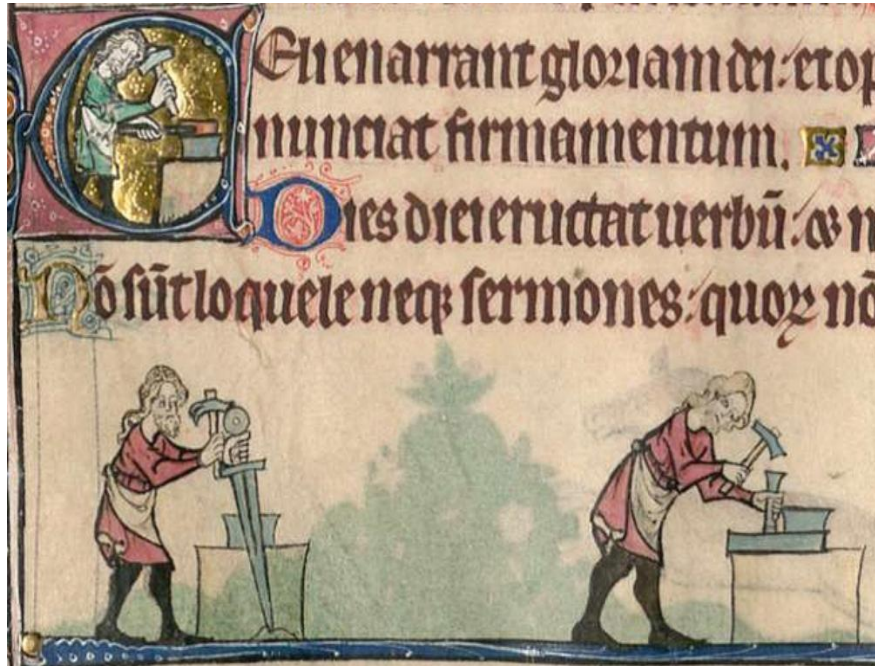 Celi enarrant gloriam dei: et op
nunciat firmamentum.
Dies diei eructat uerbū: ⁊ n
Nō sūt loquele neqꝫ sermones: quoꝝ nō